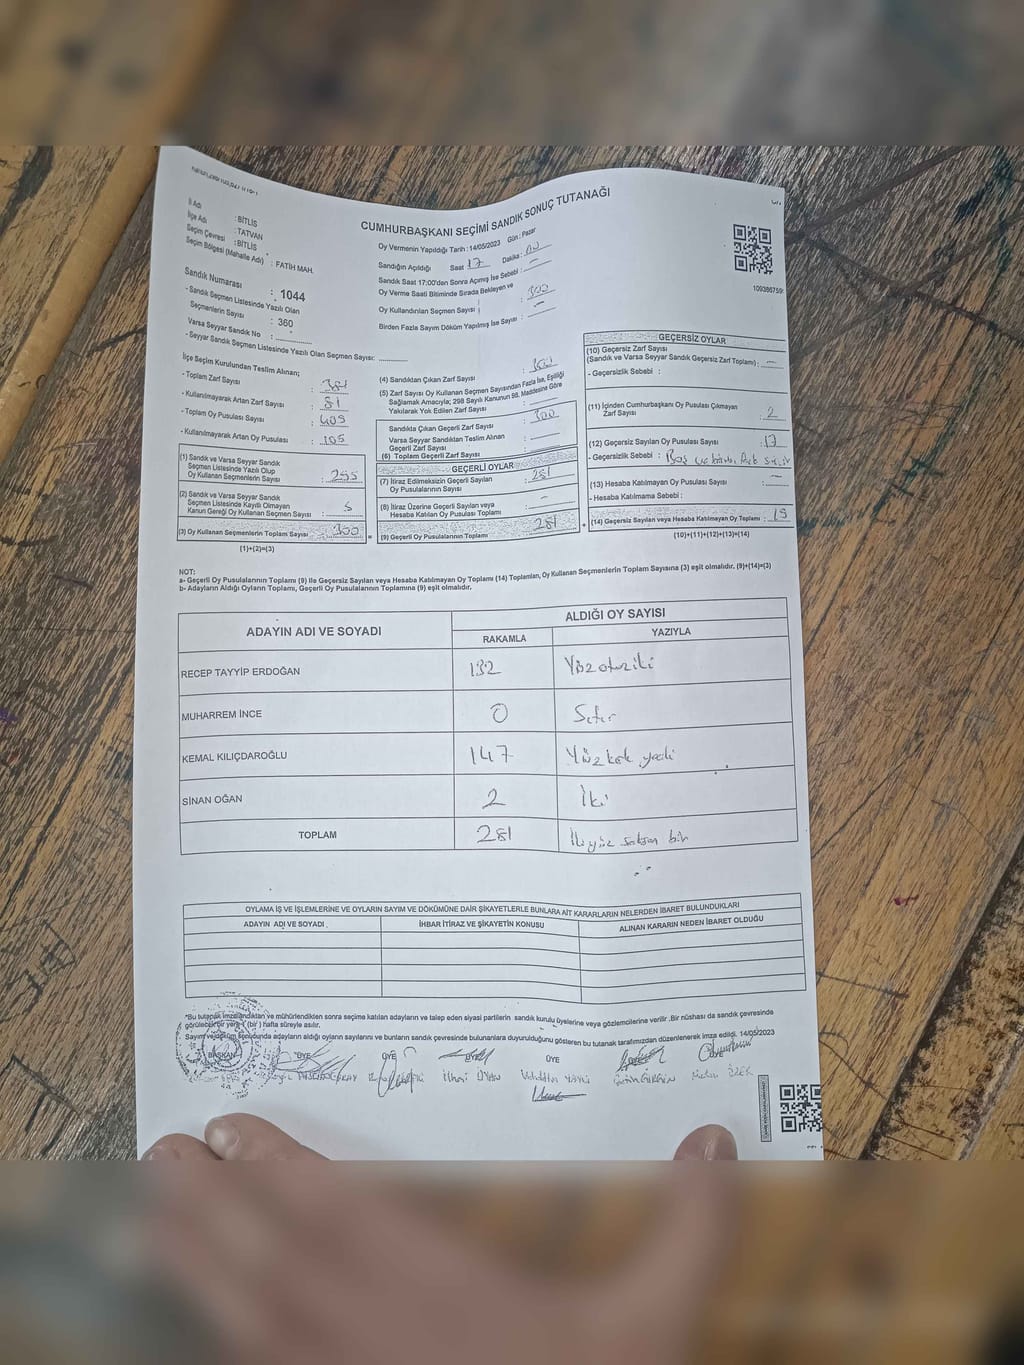 CUMHURBAŞKANI SEÇİMİ SANDIK SONUÇ TUTANAĞI
İl Adı : BİTLİS
İlçe Adı : TATVAN
Seçim Çevresi : BİTLİS
Seçim Bölgesi (Mahalle Adı) : FATİH MAH.
Sandık Numarası : 1044
- Sandık Seçmen Listesinde Yazılı Olan
Seçmenlerin Sayısı : 360
Varsa Seyyar Sandık No :
- Seyyar Sandık Seçmen Listesinde Yazılı Olan Seçmen Sayısı:
Oy Vermenin Yapıldığı Tarih : 14/05/2023 Gün : Pazar
Sandığın Açıldığı Saat 17 Dakika :
Sandık Saat 17:00'den Sonra Açılmış İse Sebebi : -
Oy Verme Saati Bitiminde Sırada Bekleyen ve
Oy Kullandırılan Seçmen Sayısı : 300
Birden Fazla Sayım Döküm Yapılmış İse Sayısı : -
109386759
İlçe Seçim Kurulundan Teslim Alınan;
- Toplam Zarf Sayısı : 381
- Kullanılmayarak Artan Zarf Sayısı : 81
- Toplam Oy Pusulası Sayısı : 405
- Kullanılmayarak Artan Oy Pusulası : 105
(1) Sandık ve Varsa Seyyar Sandık
Seçmen Listesinde Yazılı Olup
Oy Kullanan Seçmenlerin Sayısı : 295
(2) Sandık ve Varsa Seyyar Sandık
Seçmen Listesinde Kayıtlı Olmayan
Kanun Gereği Oy Kullanan Seçmen Sayısı : 5
(3) Oy Kullanan Seçmenlerin Toplam Sayısı : 300
(1)+(2)=(3)
(4) Sandıktan Çıkan Zarf Sayısı : 300
(5) Zarf Sayısı Oy Kullanan Seçmen Sayısından Fazla İse, Eşitliği
Sağlamak Amacıyla; 298 Sayılı Kanunun 98. Maddesine Göre
Yakılarak Yok Edilen Zarf Sayısı :
Sandıkta Çıkan Geçerli Zarf Sayısı : 300
Varsa Seyyar Sandıktan Teslim Alınan
Geçerli Zarf Sayısı :
(6) Toplam Geçerli Zarf Sayısı :
GEÇERLİ OYLAR
(7) İtiraz Edilmeksizin Geçerli Sayılan
Oy Pusulalarının Sayısı : 281
(8) İtiraz Üzerine Geçerli Sayılan veya
Hesaba Katılan Oy Pusulası Toplamı : -
(9) Geçerli Oy Pusulalarının Toplamı : 281
GEÇERSİZ OYLAR
(10) Geçersiz Zarf Sayısı
(Sandık ve Varsa Seyyar Sandık Geçersiz Zarf Toplamı) : -
- Geçersizlik Sebebi :
(11) İçinden Cumhurbaşkanı Oy Pusulası Çıkmayan
Zarf Sayısı : 2
(12) Geçersiz Sayılan Oy Pusulası Sayısı : 17
- Geçersizlik Sebebi : Boş
(13) Hesaba Katılmayan Oy Pusulası Sayısı : -
- Hesaba Katılmama Sebebi :
(14) Geçersiz Sayılan veya Hesaba Katılmayan Oy Toplamı : 19
(10)+(11)+(12)+(13)=(14)
NOT:
a- Geçerli Oy Pusulalarının Toplamı (9) ile Geçersiz Sayılan veya Hesaba Katılmayan Oy Toplamı (14) Toplamları, Oy Kullanan Seçmenlerin Toplam Sayısına (3) eşit olmalıdır. (9)+(14)=(3)
b- Adayların Aldığı Oyların Toplamı, Geçerli Oy Pusulalarının Toplamına (9) eşit olmalıdır.
ADAYIN ADI VE SOYADI ALDIĞI OY SAYISI
RAKAMLA YAZIYLA
RECEP TAYYİP ERDOĞAN 132 Yüzotuziki
MUHARREM İNCE 0 Sıfır
KEMAL KILIÇDAROĞLU 147 Yüzkırk yedi
SİNAN OĞAN 2 İki
TOPLAM 281 İkiyüz seksen bir
OYLAMA İŞ VE İŞLEMLERİNE VE OYLARIN SAYIM VE DÖKÜMÜNE DAİR ŞİKAYETLERLE BUNLARA AİT KARARLARIN NELERDEN İBARET BULUNDUKLARI
ADAYIN ADI VE SOYADI İHBAR İTİRAZ VE ŞİKAYETİN KONUSU ALINAN KARARIN NEDEN İBARET OLDUĞU
*Bu tutanak imzalandıktan ve mühürlendikten sonra seçime katılan adayların ve talep eden siyasi partilerin sandık kurulu üyelerine veya gözlemcilerine verilir. Bir nüshası da sandık çevresinde
görülebilir bir yere 1 (bir) hafta süreyle asılır.
Sayım ve döküm sonucunda adayların aldığı oyların sayılarını ve bunların sandık çevresinde bulunanlara duyurulduğunu gösteren bu tutanak tarafımızdan düzenlenerek imza edildi. 14/05/2023
BAŞKAN ÜYE ÜYE ÜYE ÜYE ÜYE ÜYE